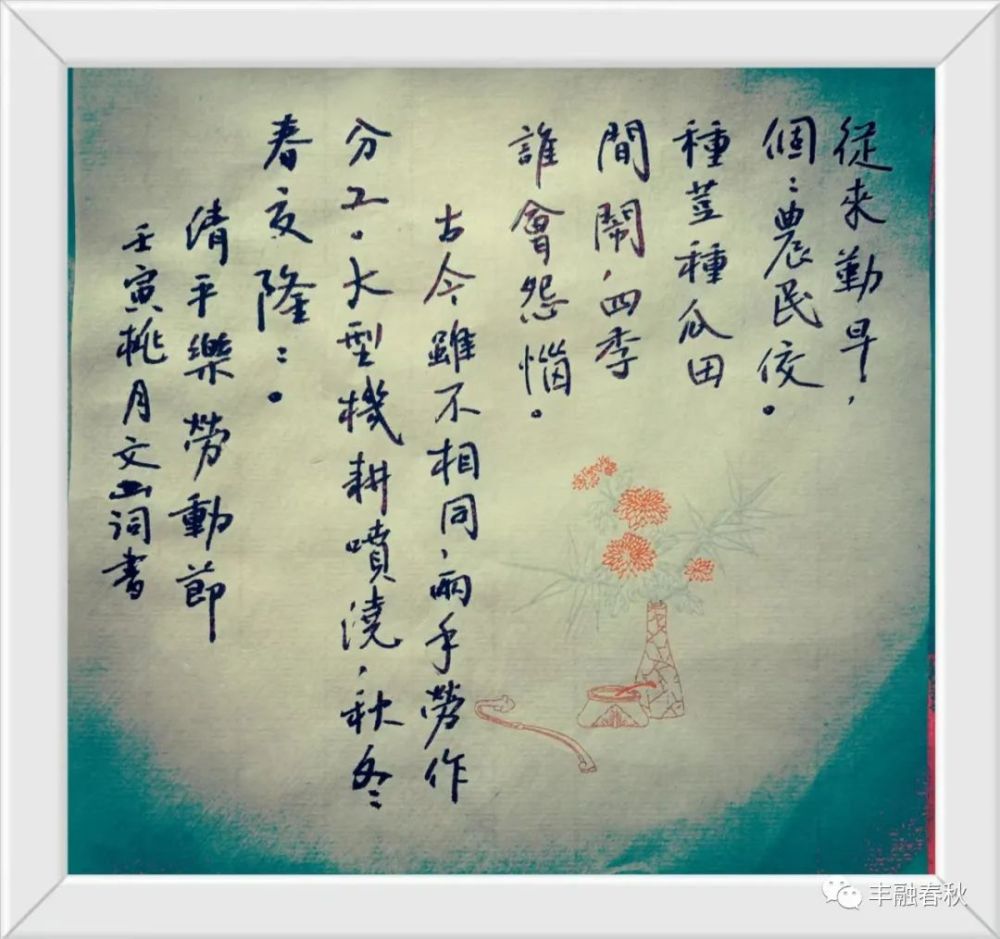 從來勤早，
個〻農民佼。
種荳種瓜田
間鬧，四季
誰會怨惱。
古今雖不相同，兩手勞作
分工。大型機耕噴澆，秋冬
春夏隆〻。
清平樂勞動節
壬寅桃月文山词書
丰融春秋